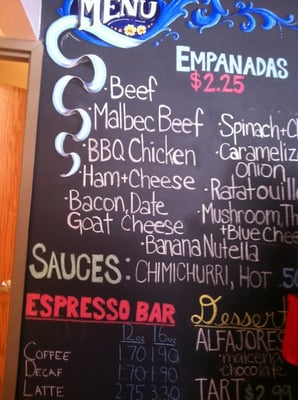 MENU
EMPANADAS
$2.25
· Beef
· Malbec Beef
· BBQ Chicken
· Ham + Cheese
· Bacon, Date
Goat Cheese
· Spinach +
·
onion
·
· Mushroom,
+ Blue
· Banana Nutella
SAUCES: CHIMICHURRI, HOT
ESPRESSO BAR
12oz 16oz
COFFEE 1.70 1.90
DECAF 1.70 1.90
LATTE 2.75 3.30
ALFAJORES
· maicena
· chocolate
TART $2.99